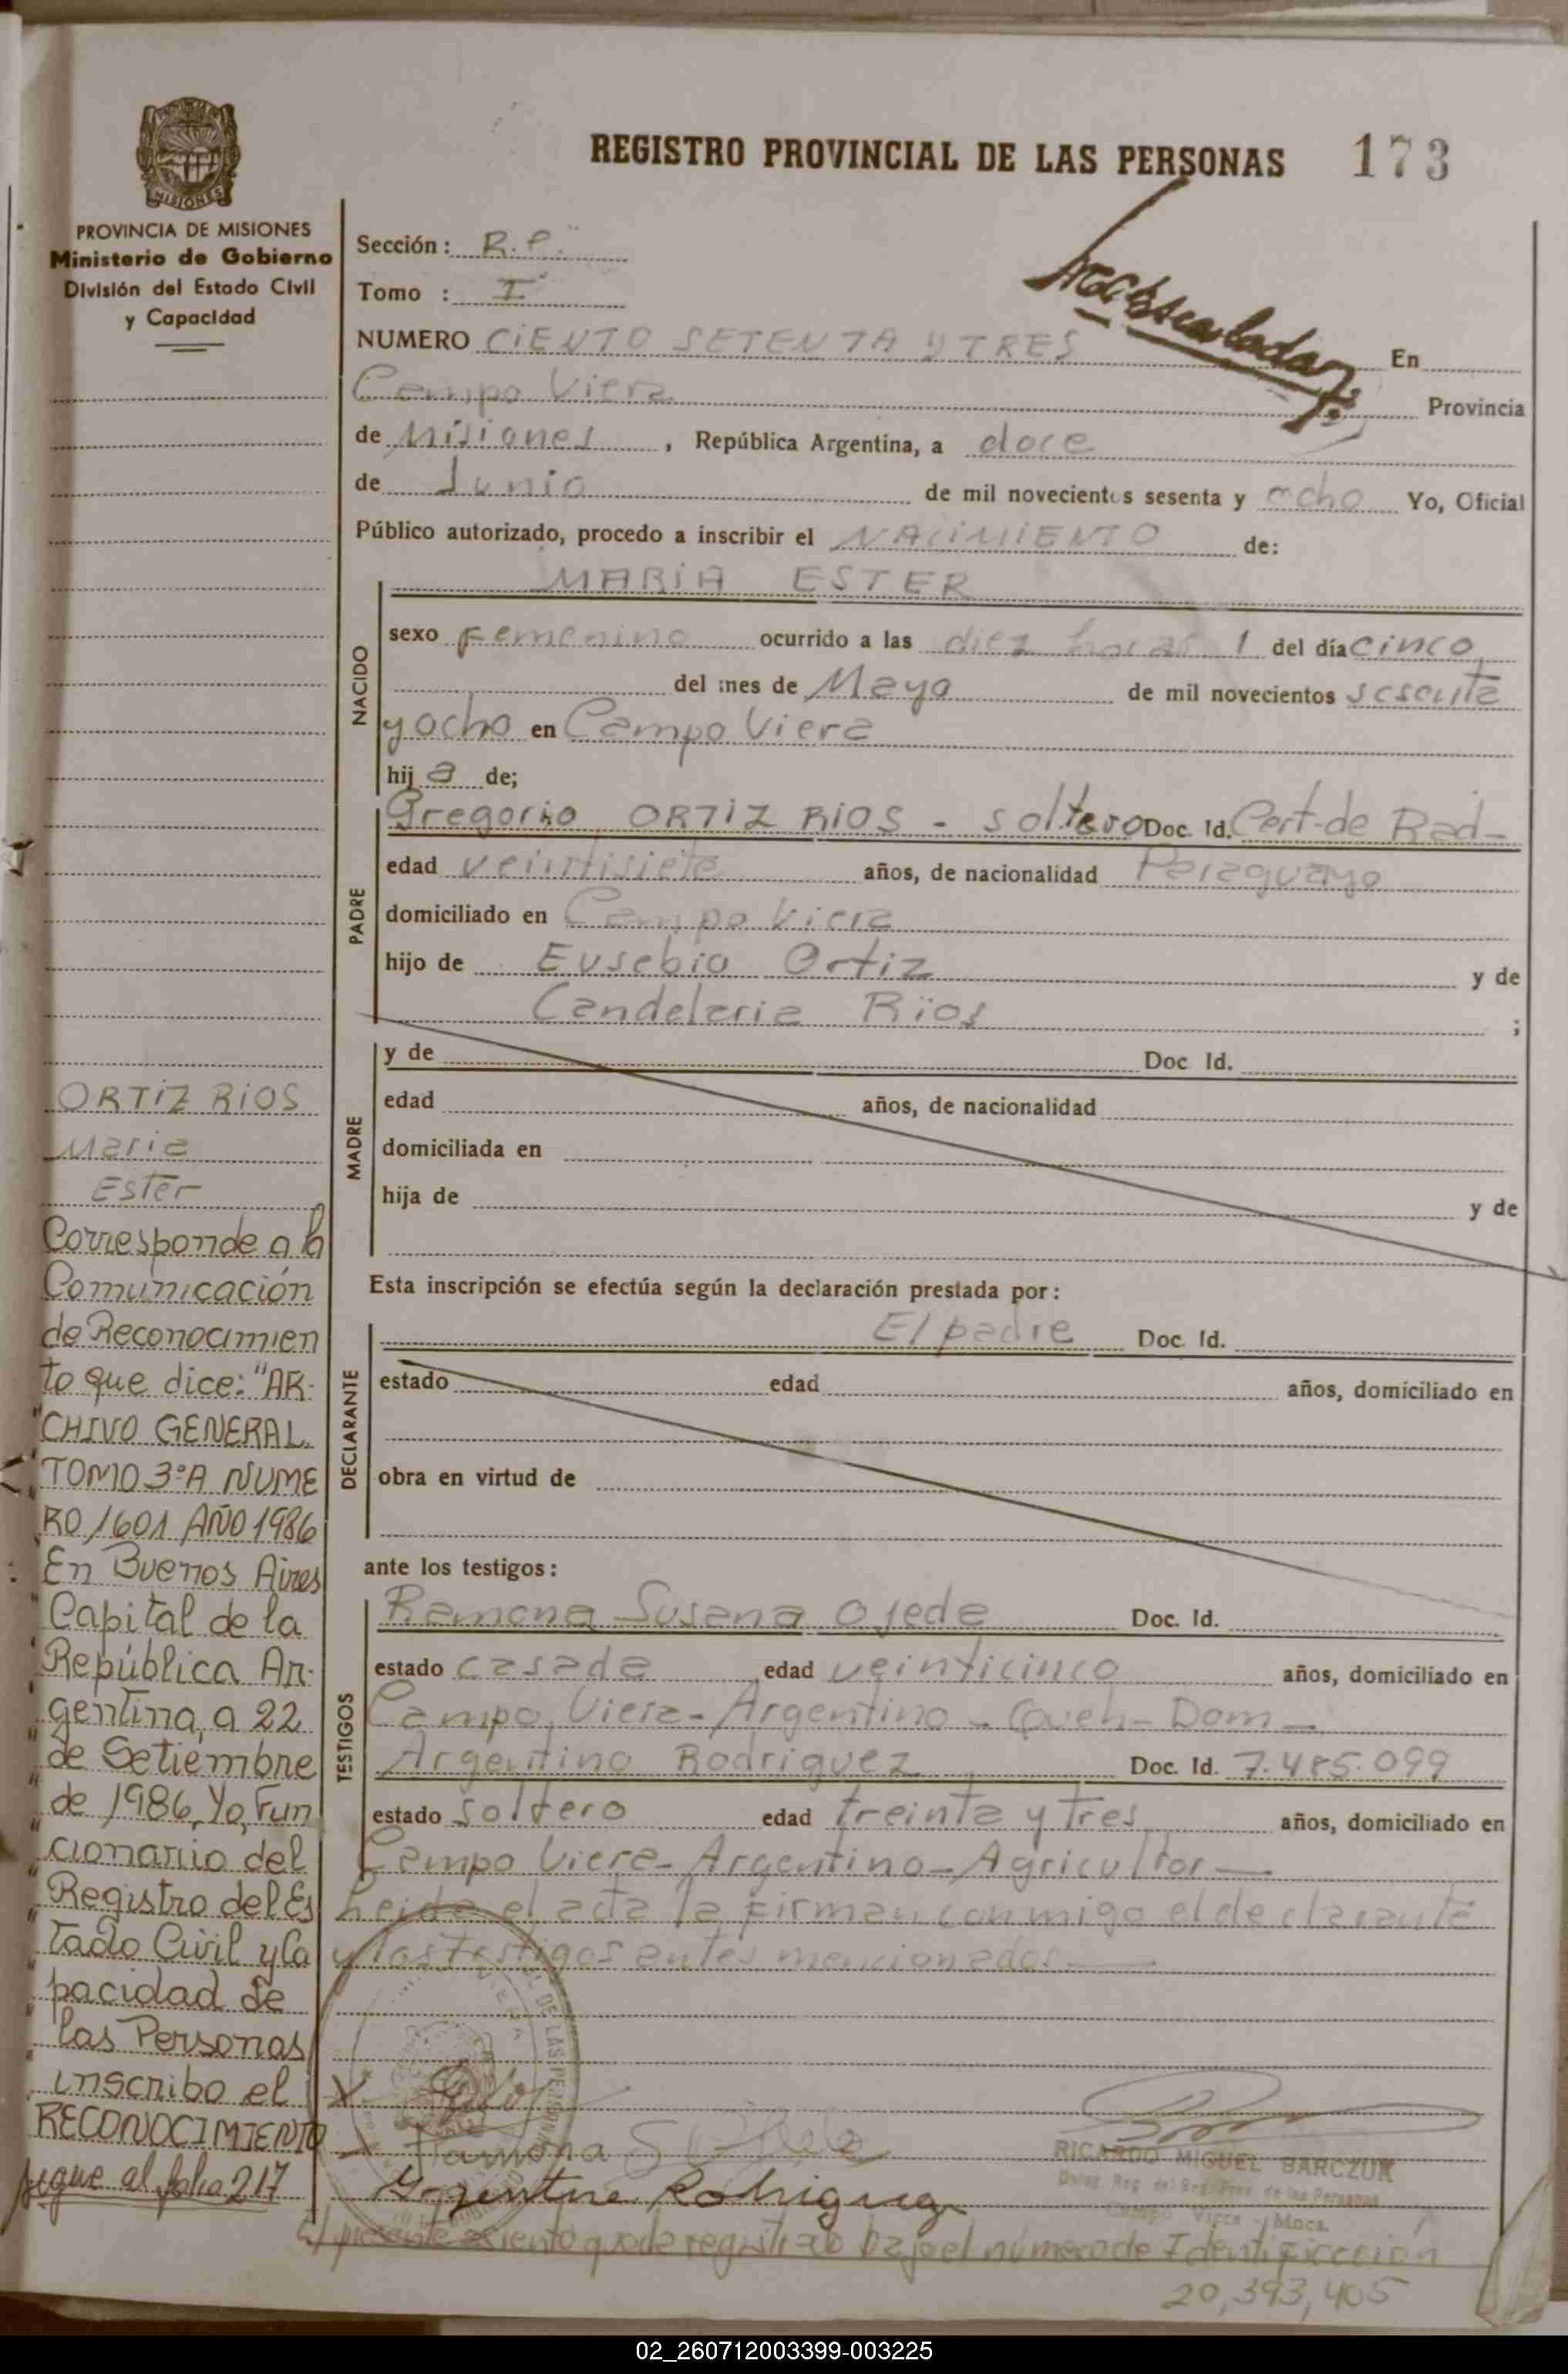 REGISTRO PROVINCIAL DE LAS PERSONAS 173
PROVINCIA DE MISIONES
Ministerio de Gobierno
División del Estado Civil
y Capacidad
Sección: R.P.
Tomo : I
NUMERO CIENTO SETENTA Y TRES En
Campo Viera Provincia
de Misiones, República Argentina, a doce
de Junio de mil novecientos sesenta y ocho Yo, Oficial
Público autorizado, procedo a inscribir el NACIMIENTO de:
MARIA ESTER
NACIDO
sexo femenino ocurrido a las diez horas del día cinco
del mes de Mayo de mil novecientos sesenta
y ocho en Campo Viera
hij a de;
PADRE
Gregorio ORTIZ RIOS - soltero Doc. Id. Cert. de Rad-
edad veintisiete años, de nacionalidad Paraguayo
domiciliado en Campo Viera
hijo de Eusebio Ortiz y de
Candelaria Rios ;
MADRE
y de Doc Id.
edad años, de nacionalidad
domiciliada en
hija de y de
Esta inscripción se efectúa según la declaración prestada por:
DECLARANTE
El padre Doc. Id.
estado edad años, domiciliado en
obra en virtud de
ante los testigos:
TESTIGOS
Ramona Susana Ojeda Doc. Id.
estado casada edad veinticinco años, domiciliado en
Campo Viera - Argentino - Queh - Dom -
Argentino Rodriguez Doc. Id. 7.485.099
estado soltero edad treinta y tres años, domiciliado en
Campo Viera - Argentino - Agricultor -
Leida el acta la firman conmigo el declarante
y los testigos antes mencionados
Ramona S
Argentino Rodriguez
RICARDO MIGUEL BARCZUK
El presente asiento queda registrado bajo el número de Identificación
20,393,405
ORTIZ RIOS
Maria
Ester
Corresponde a la
Comunicación
de Reconocimien
to que dice: "AR-
"CHIVO GENERAL.
"TOMO 3°A NUME
RO 1601 AÑO 1986
En Buenos Aires
"Capital de la
República Ar-
"gentina, a 22
"de Setiembre
"de 1986, Yo, Fun
"cionario del
"Registro del Es
"tado Civil y Ca
"pacidad de
"las Personas
"inscribo el
RECONOCIMIENTO
sigue al folio 217
02_260712003399-003225